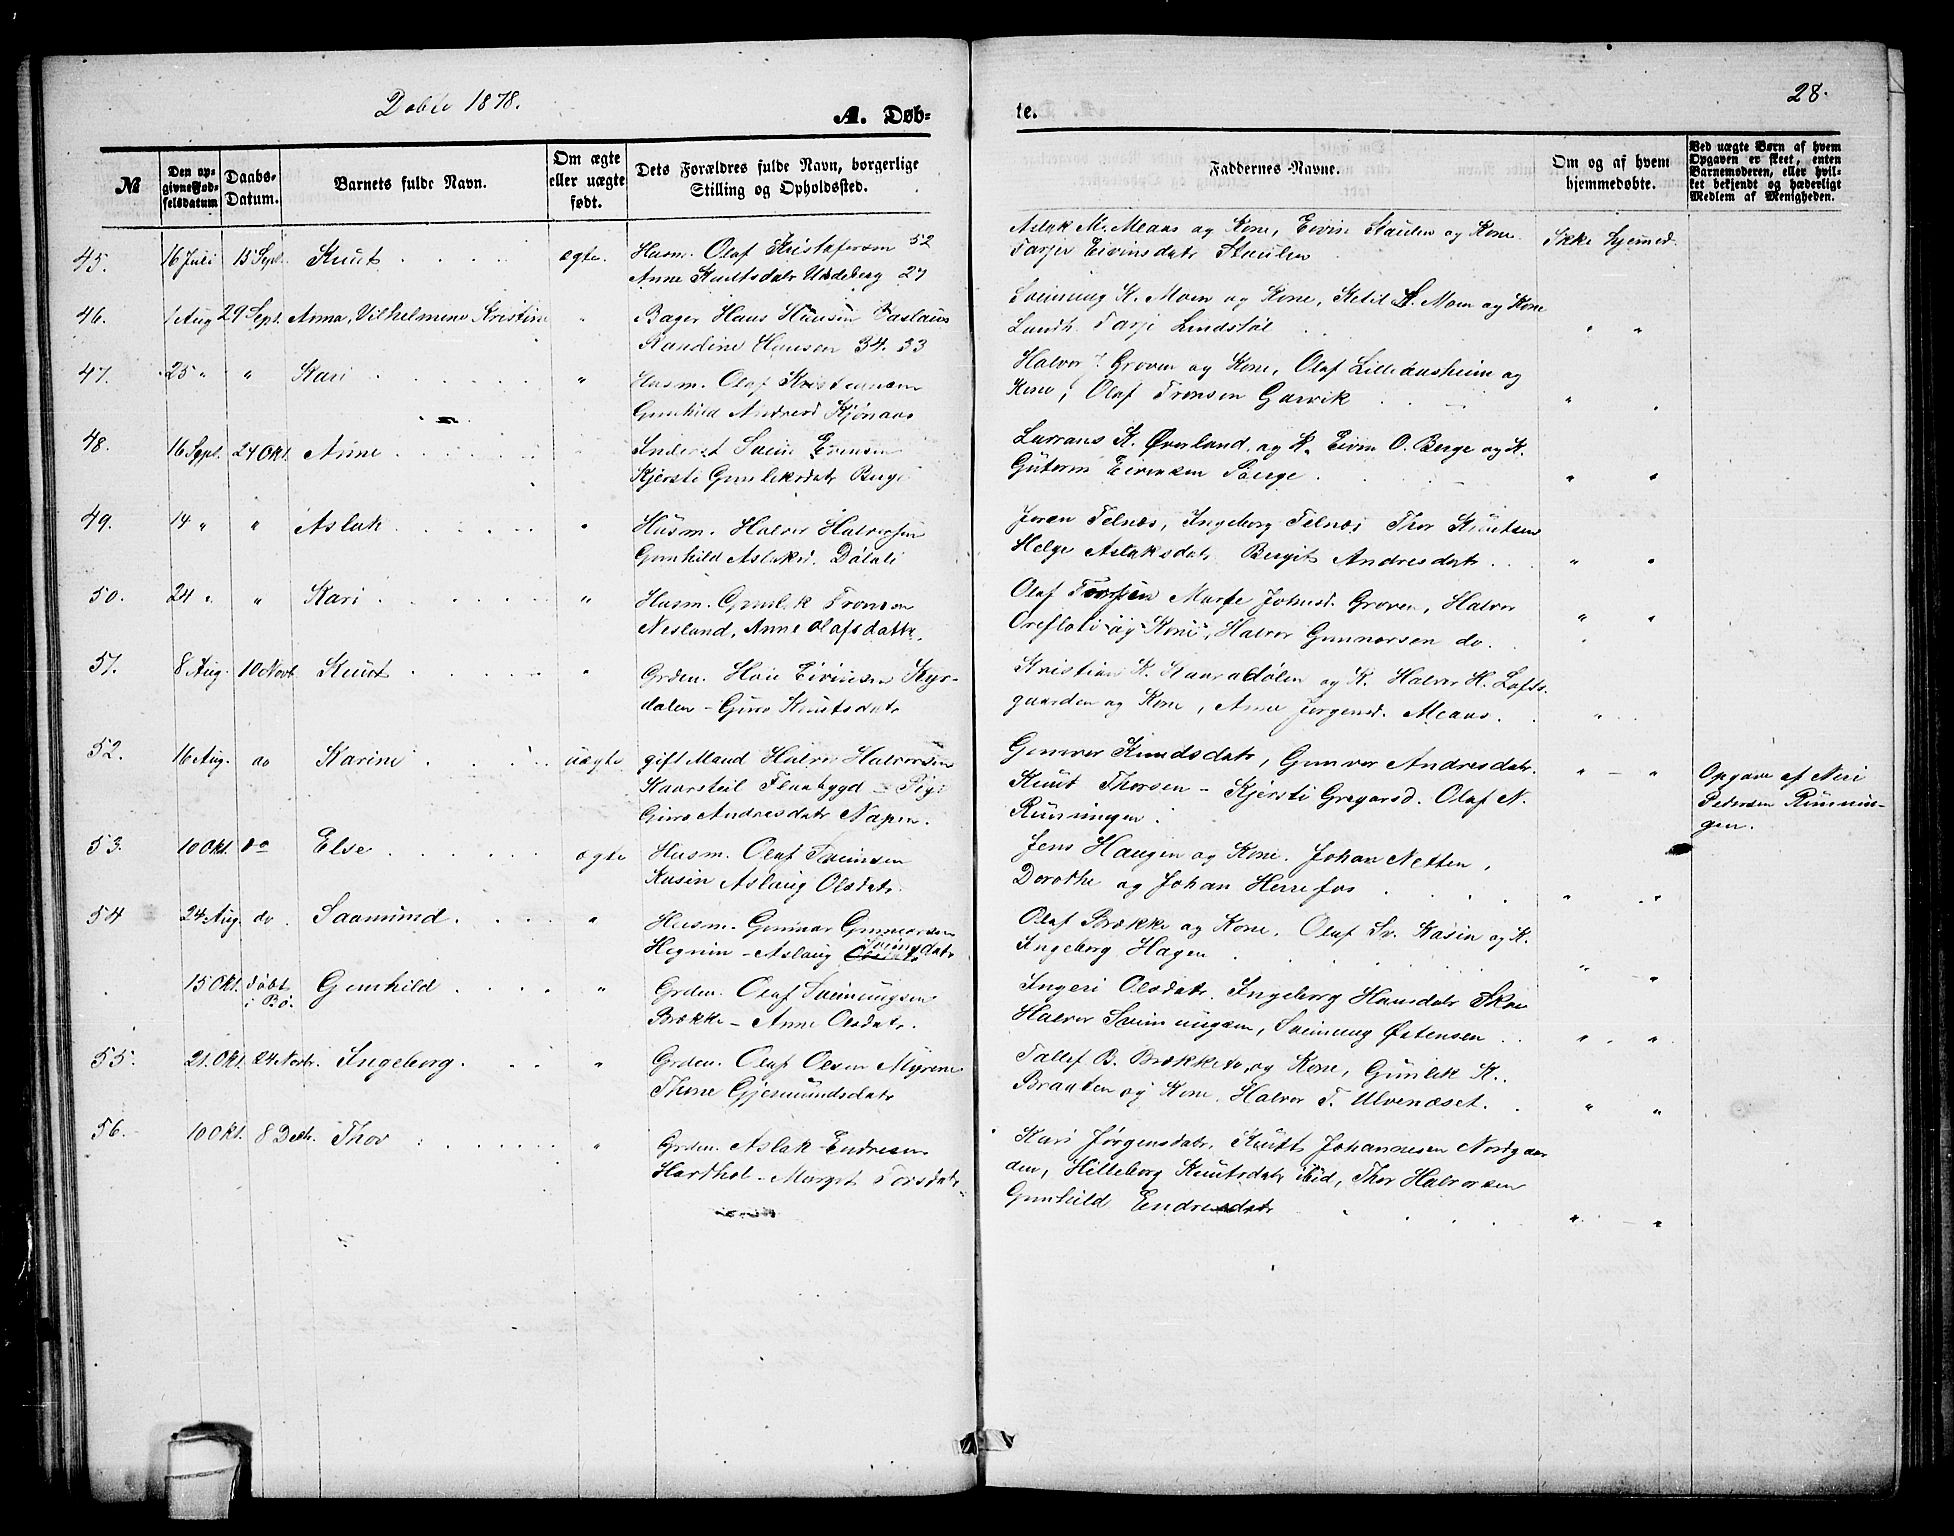 Døbte 1878.
28.
A. Døb-
te.
№
Den opgivne Fødselsdatum
Daabs-Datum.
Barnets fulde Navn.
Om ægte eller uægte født.
Dets Forældres fulde Navn, borgerlige Stilling og Opholdssted.
Faddernes Navne.
Om og af hvem hjemmedøbte.
Ved uægte Børn af hvem Opgaven er skeet, enten Barnemoderen, eller hvilket bekjendt og hæderligt Medlem af Menigheden.
45. 16 Juli 15 Sept. Knut ægte. Husm. Olaf Kristofersen 52
Anne Knutsdatr Undeberg 27
Aslak M. Meaas og Kone, Eivin Staulen og Kone
Tarjer Eivinsdatr Staulen
Ikke hjemed.
46. 1 Aug 29 Sept. Anna, Vilhelmine Kristine " Bager Hans Hansen
Randine Hansen 34. 33
Sveinung K. Moen og Kone, Ketil K. Moen og Kone
Lundh. Tarje Lindstøl " "
47. 25 " " Kari " Husm. Olaf Kristiansen
Gunhild Andresd Kjønaas
Halvor T. Groven og Kone, Olaf Lilleaasheim og
Kone, Olaf Tronsen Garvik " "
48. 16 Sept. 24 Okt. Anne " Inderst Svein Evensen
Kjersti Gunleksdatr Berge
K. Øverland, og K. Eivin O. Berge og K.
Gutorm Eivinsen Berge " "
49. 14 " " Aslak " Husm. Halvor Halvorsen
Gunhild Aslaksd. Dølali
Jøran Telnæs, Ingeborg Telnæs, Thor Knutsen
Helge Aslaksdatr. Bergit Andresdatr " "
50. 24 " " Kari " Husm. Gunlek Tronsen
Nesland, Anne Olafsdatter,
Olaf Marte Johnsd. Groven, Halvor
og Kone, Halvor Gunnarsen do. " "
51. 8 Aug. 10 Novb Knut " Grden. Eivinsen
dalen - Guro Knutsdatr
Kristian K. og K. Halvor H. Lofts
gaarden og Kone, Anne Jørgensd. Meaas. "
52. 16 Aug. do Karine uægte gift Mand Halvor Halvorsen
Kaasteil Flaabygd - Pige
Guro Andresdatr Napen.
Gunvor Knudsdatr, Gunvor Andresdatr.
Knut Thorsen - Kjersti Gregarsd. Olaf N.
Rünningen. " - "
Opgave af Neri
Pedersen Rünnin-
gen.
53. 10 Okt. do Else ægte Husm. Olaf Sveinsen
Kasin Aslaug Olsdatr.
Jens Haugen og Kone. Johan Netten,
Dorothe og Johan Herrefos " "
54 24 Aug. do. Saamund " Husm. Gunnar Gunnarsen
Aslaug Sveinsdatr
Olaf Brække og Kone. Olaf Sv. Kasin og K.
Ingeborg Hagen " "
15 Okt. døbt
i Bø. Gunhild " Grden. Olaf Sveinungsen
Brække - Anne Olsdatr.
Ingeri Olsdatr. Ingeborg Hansdatr
Halvor Sveinungsen, Sveinung Østensen " "
55. 21. Okt. 24 Novbr. Ingeborg. " Grden. Olaf Olsen Myrene
Thone Gjermundsdatr
Tallef B. Brækketo, og Kone, Gunlek K.
Braaten og Kone, Halvor T. Ulvenæset. " "
56. 10 Okt. 8 Decbr. Thov " Grden. Aslak Endresen
Margit Torsdatr.
Kari Jørgensdatr. Knutt Johannesen Nordgaar
den, Hilleborg Knutsdatr ibid, Thor Halvorsen
Gunhild Endresdatr " - "